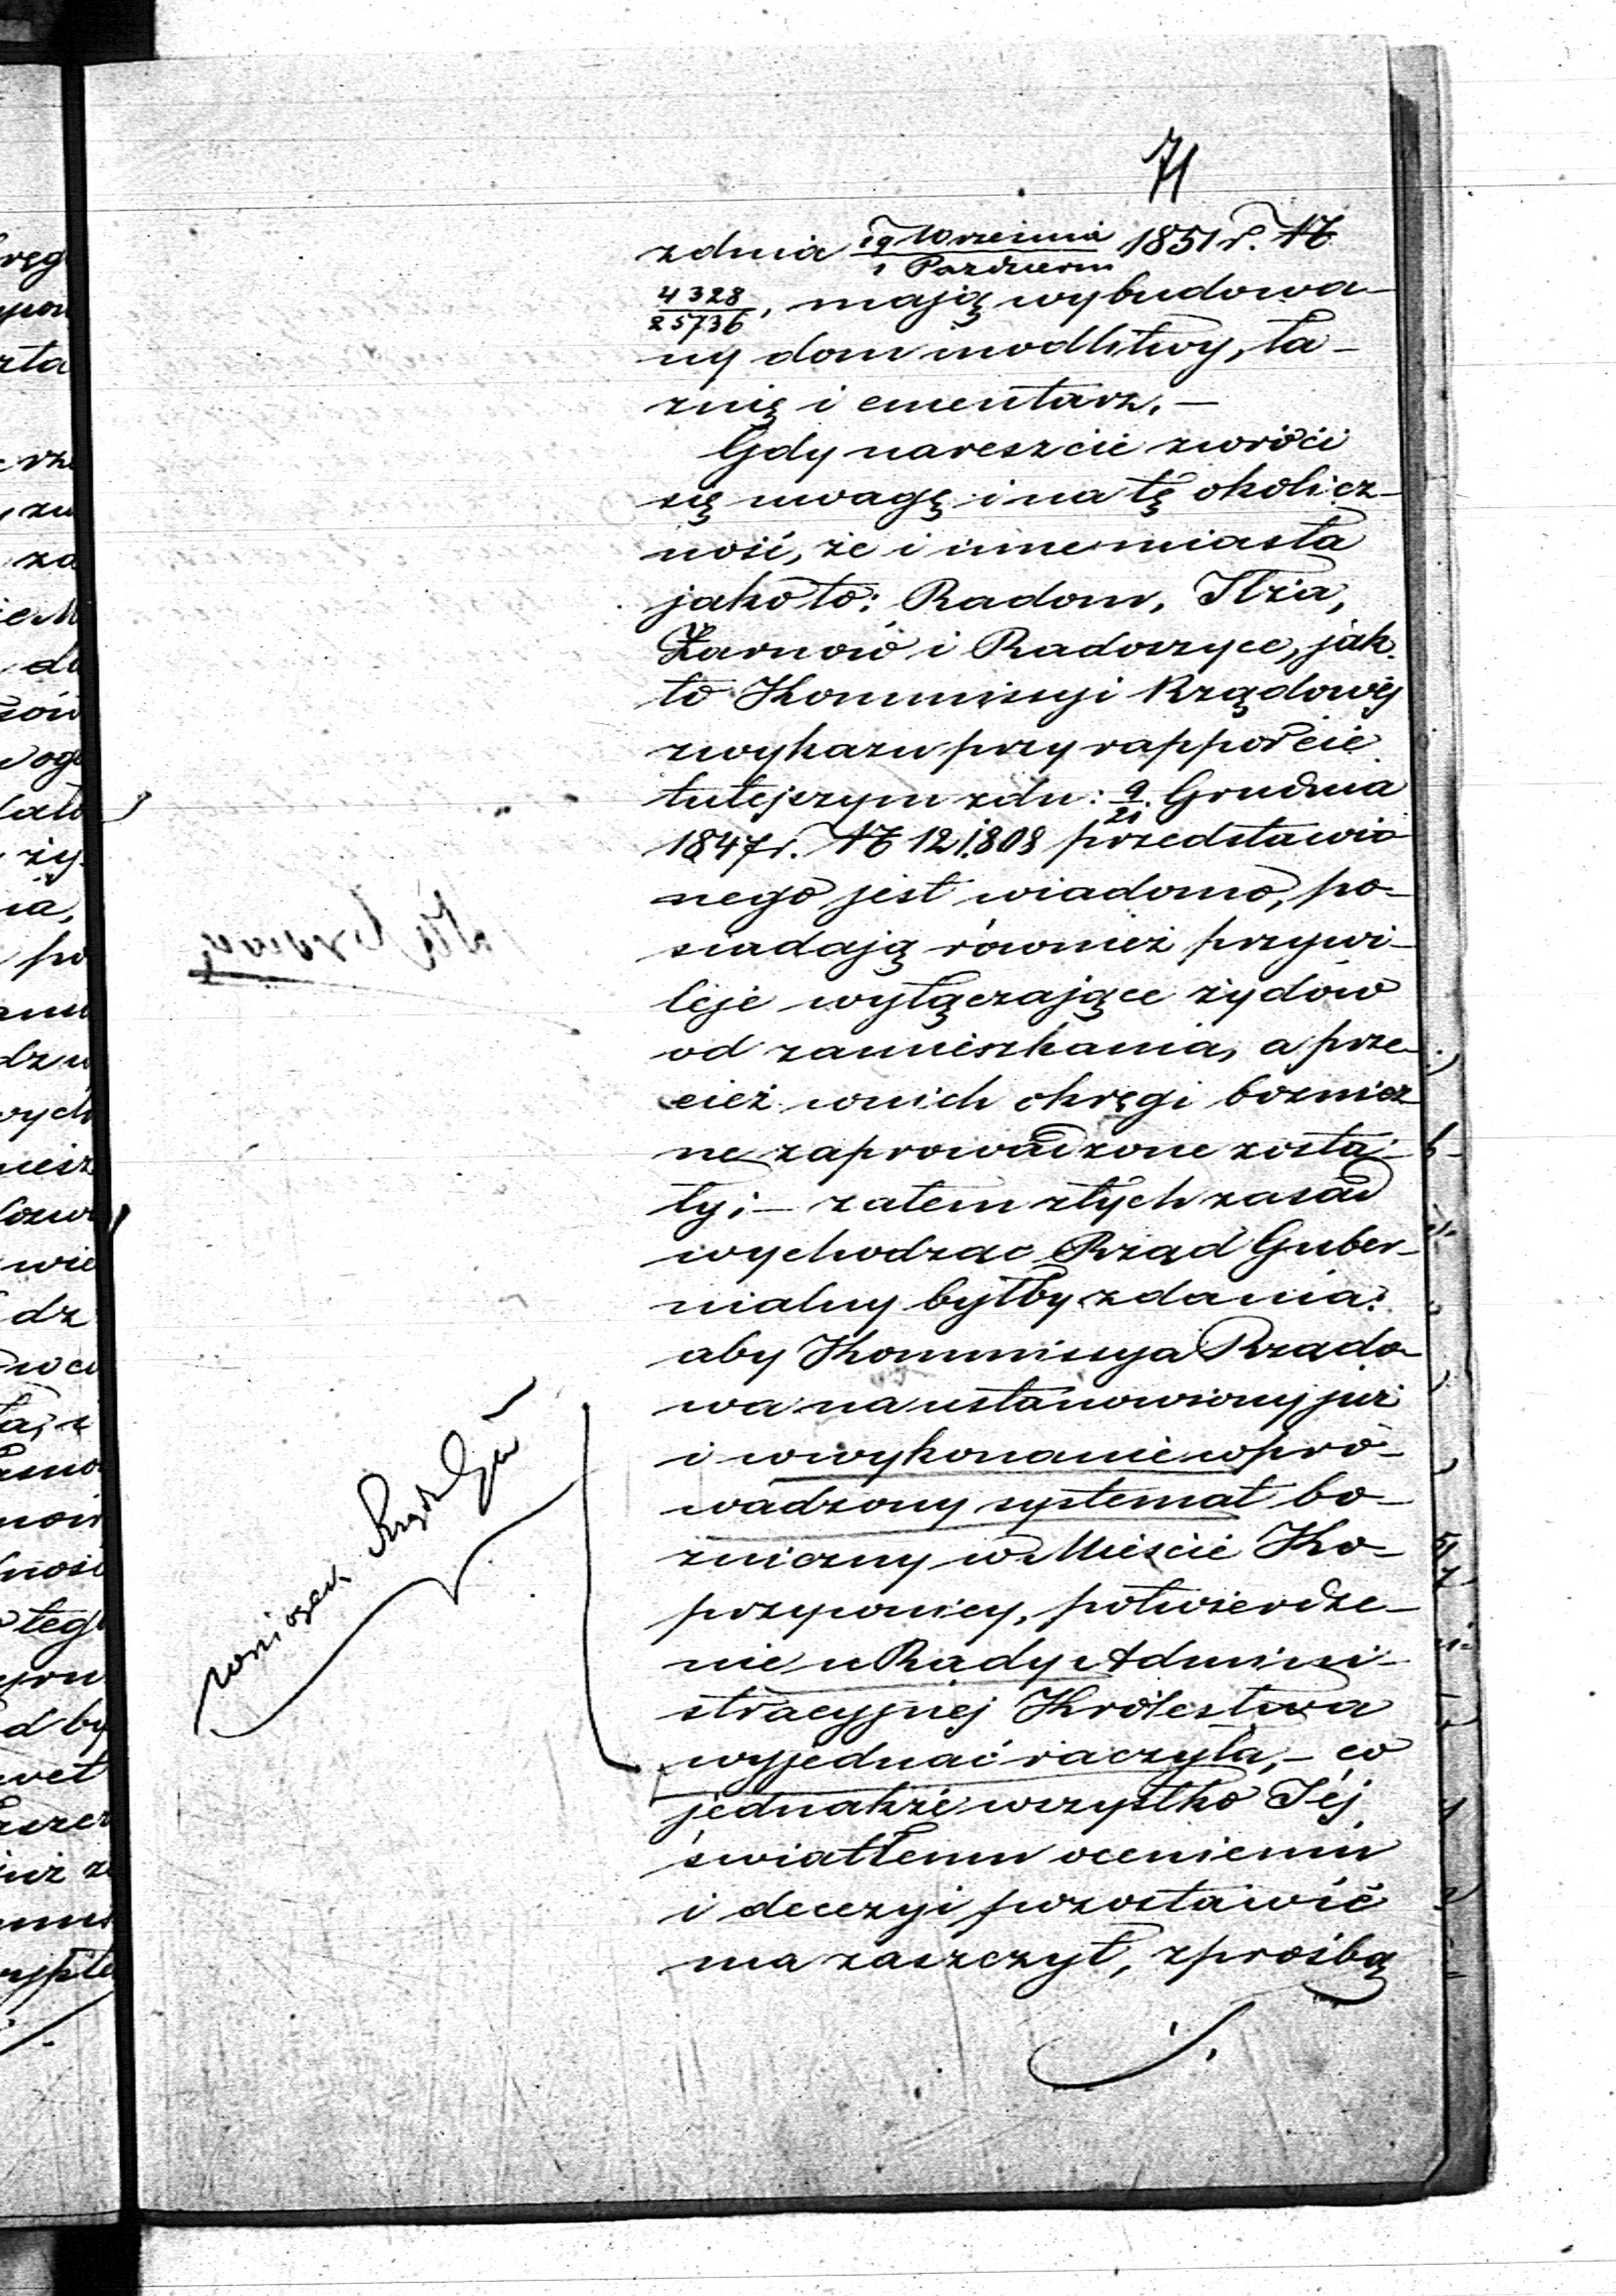 71
z dnia 19 Września / 1 Październ 1851 r. N
4328/25736, mają wybudowa-
ny dom modlitwy, ła-
znię i cmentarz. —
Gdy nareszcie zwróci
się uwagę i na tę okolicz-
ność, że i inne miasta
jako to: Radom, Iłża,
Żarnów i Radoszyce, jak
to Kommissyi Rządowéj
z wykazu przy rapporcie
tutejszym z dn: 9/21 Grudnia
1847 r. N 121,808 przedstawio
nego jest wiadomo, po-
siadają również przywi-
leje wyłączające żydów
od zamieszkania, a prze-
cież w nich okręgi bożnicz
ne zaprowadzone zosta-
ły; — zatem z tych zasad
wychodząc Rząd Guber-
nialny byłby zdania:
aby Kommissya Rządo-
wa na ustanowiony już
i w wykonanie wpro-
wadzony systemat bo-
żniczny w Mieście Ko-
przywnicy, potwierdze-
nie u Rady Admini-
stracyjnej Królestwa
wyjednać raczyła, — co
jednakże wszystko Jéj
światłemu ocenieniu
i decezyi pozostawić
ma zaszczyt, z prośbą
wniosek Rząd Gu